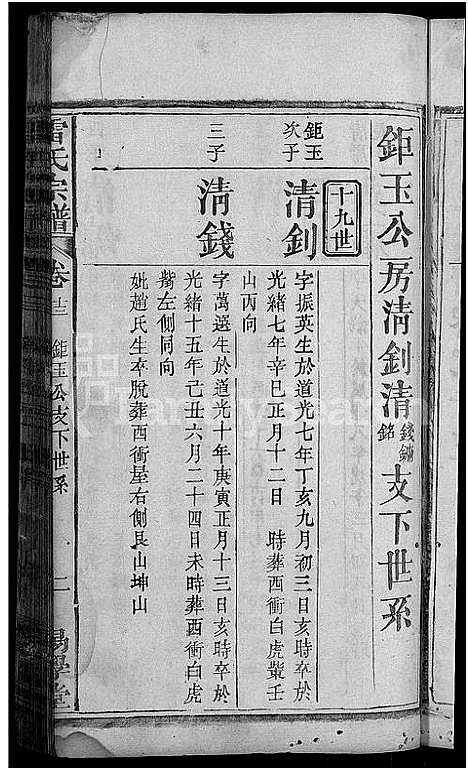 鉅玉公房清釗清錢銘支下世系
十九世
鉅玉次子
清釗
字振英生於道光七年丁亥九月初三日亥時卒於
光緒七年辛巳正月十二日 時葬西衝白虎嘴壬
山丙向
三子
清錢
字萬選生於道光十年庚寅正月十三日亥時卒於
光緒十五年己丑六月二十四日未時葬西衝白虎
觜左側同向
妣趙氏生卒脫葬西衝屋右側艮山坤山
雷氏宗譜
卷
鉅玉公支下世系
二
易學堂